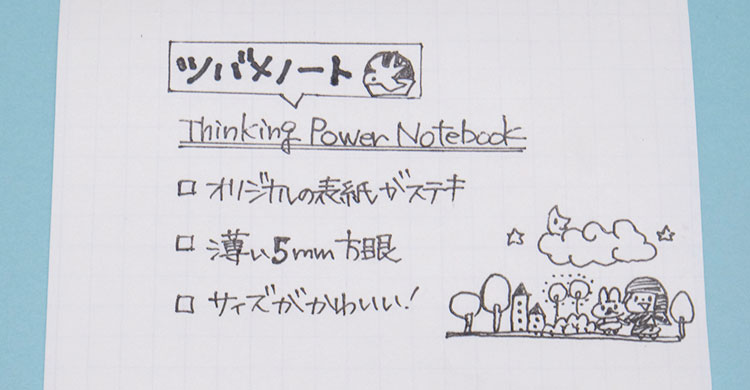 ツバメノート
Thinking Power Notebook
□ オリジナルの表紙がステキ
□ 薄い5mm方眼
□ サイズがかわいい!